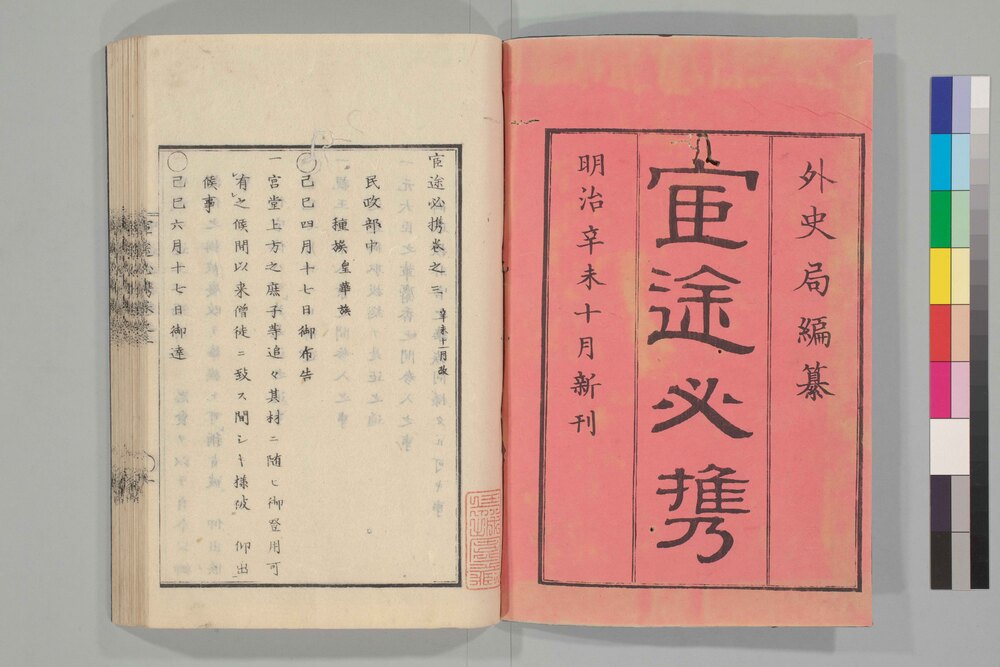 外史局編纂
官途必携
明治辛未十月新刊
官途必携巻之三 辛未十一月改
民政部中
種族 皇華族
〇己巳四月十七日御布告
一宮堂上方之庶子等追々其材ニ随ヒ御登用可
有之候間以来僧徒ニ致ス間シキ様被 仰出
候事
〇己巳六月十七日御達